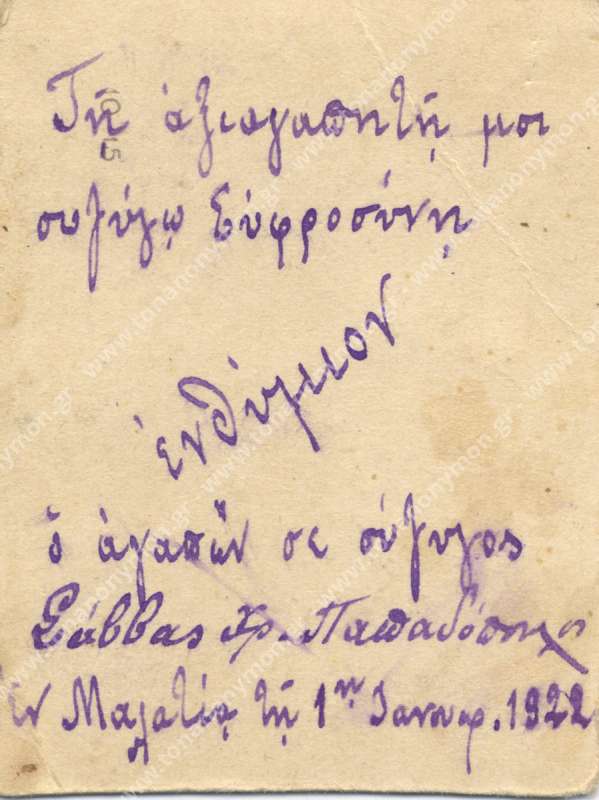 Τῇ ἀξιαγαπητῇ μοι
συζύγῳ Εὐφροσύνῃ
ἐνθύμιον
ὁ ἀγαπῶν σε σύζυγος
Σάββας Χρ. Παπαδόπουλος
Ἐν Μαλατίᾳ τῇ 1ῃ Ἰανουαρ. 1922
www.tonanonymon.gr